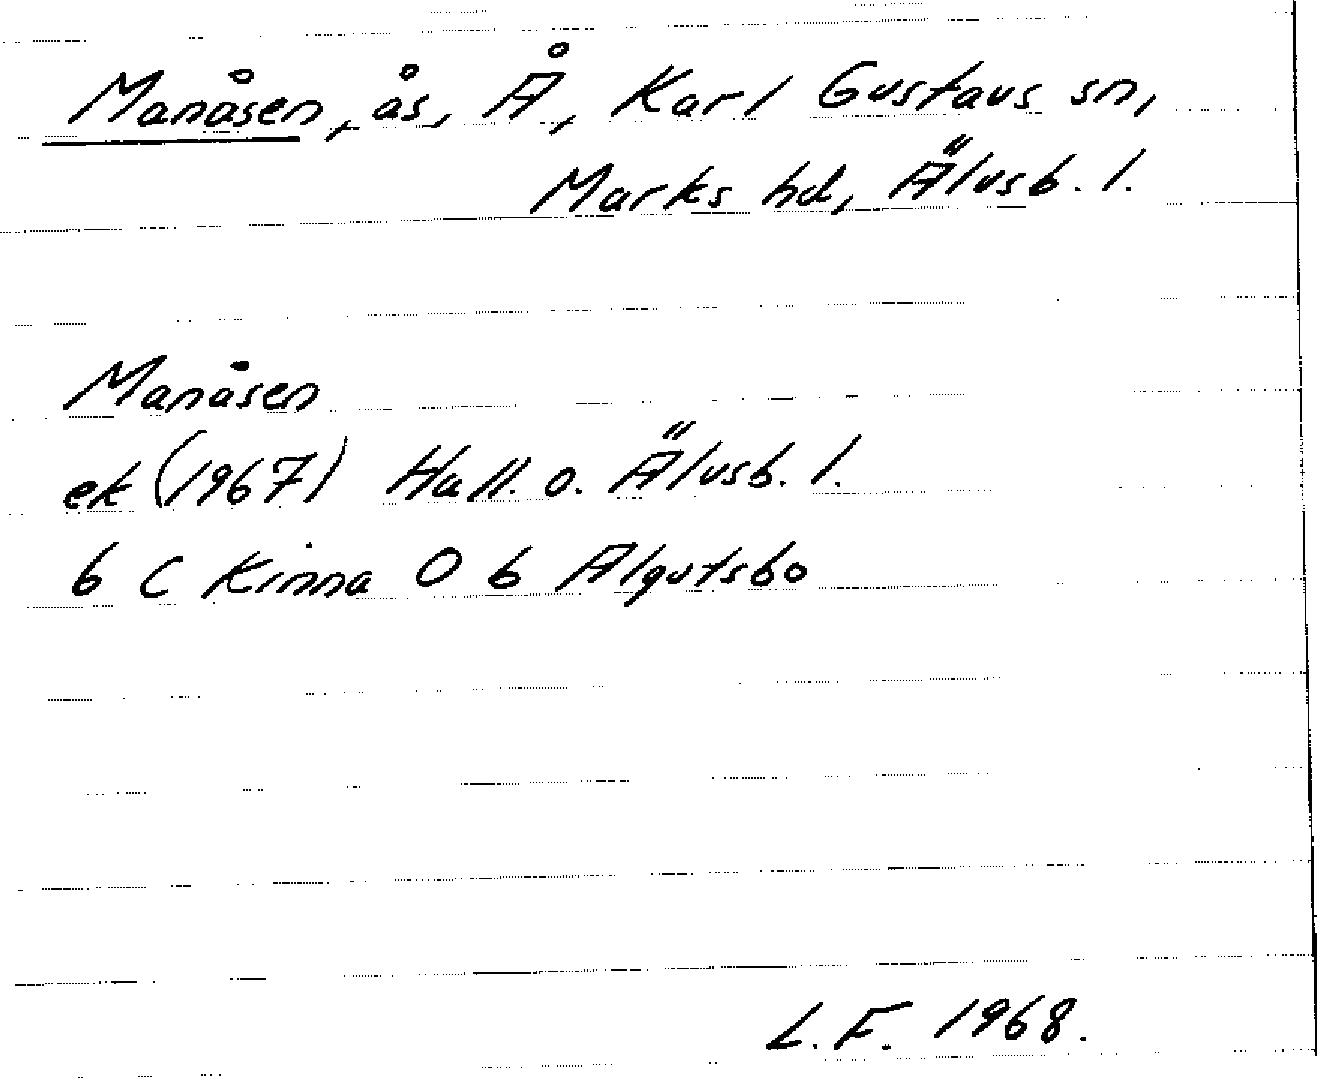 Manåsen, ås, Å, Karl Gustavs sn,
Marks hd, Älvsb. l.
Manåsen
ek (1967) Hall. o. Älvsb. l.
6 C Kinna 0 b Algutsbo
L.F. 1968.